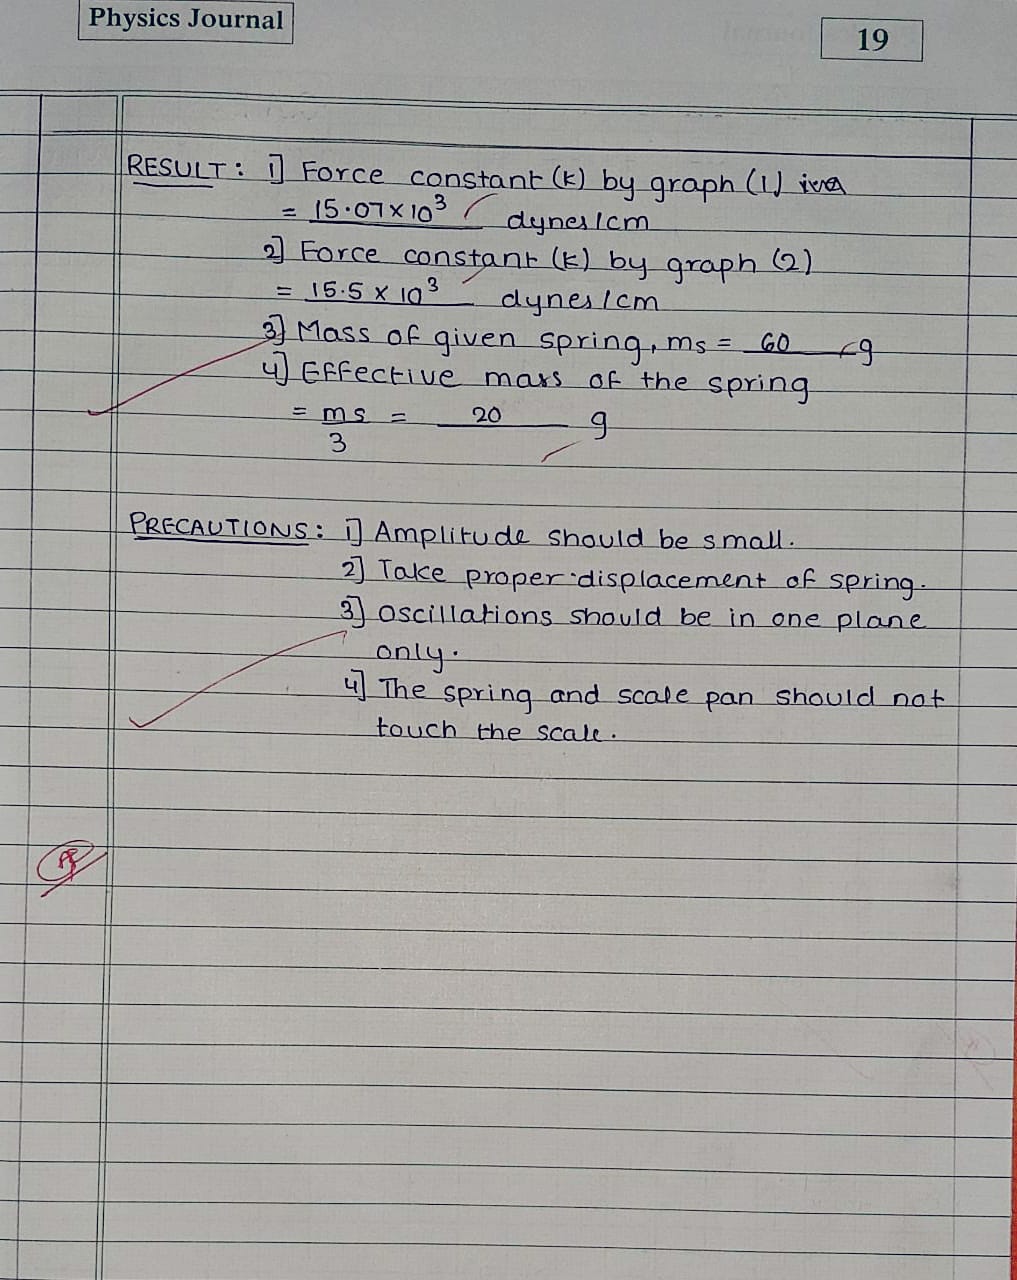 Physics Journal
19
RESULT: 1] Force constant (k) by graph (1)
= 15.07×10³ dynes/cm
2] Force constant (k) by graph (2)
= 15.5 × 10³ dynes/cm
3] Mass of given spring, ms = 60 g
4] Effective mass of the spring
= ms/3 = 20 g
PRECAUTIONS: 1] Amplitude should be small.
2] Take proper displacement of spring.
3] Oscillations should be in one plane
only.
4] The spring and scale pan should not
touch the scale.